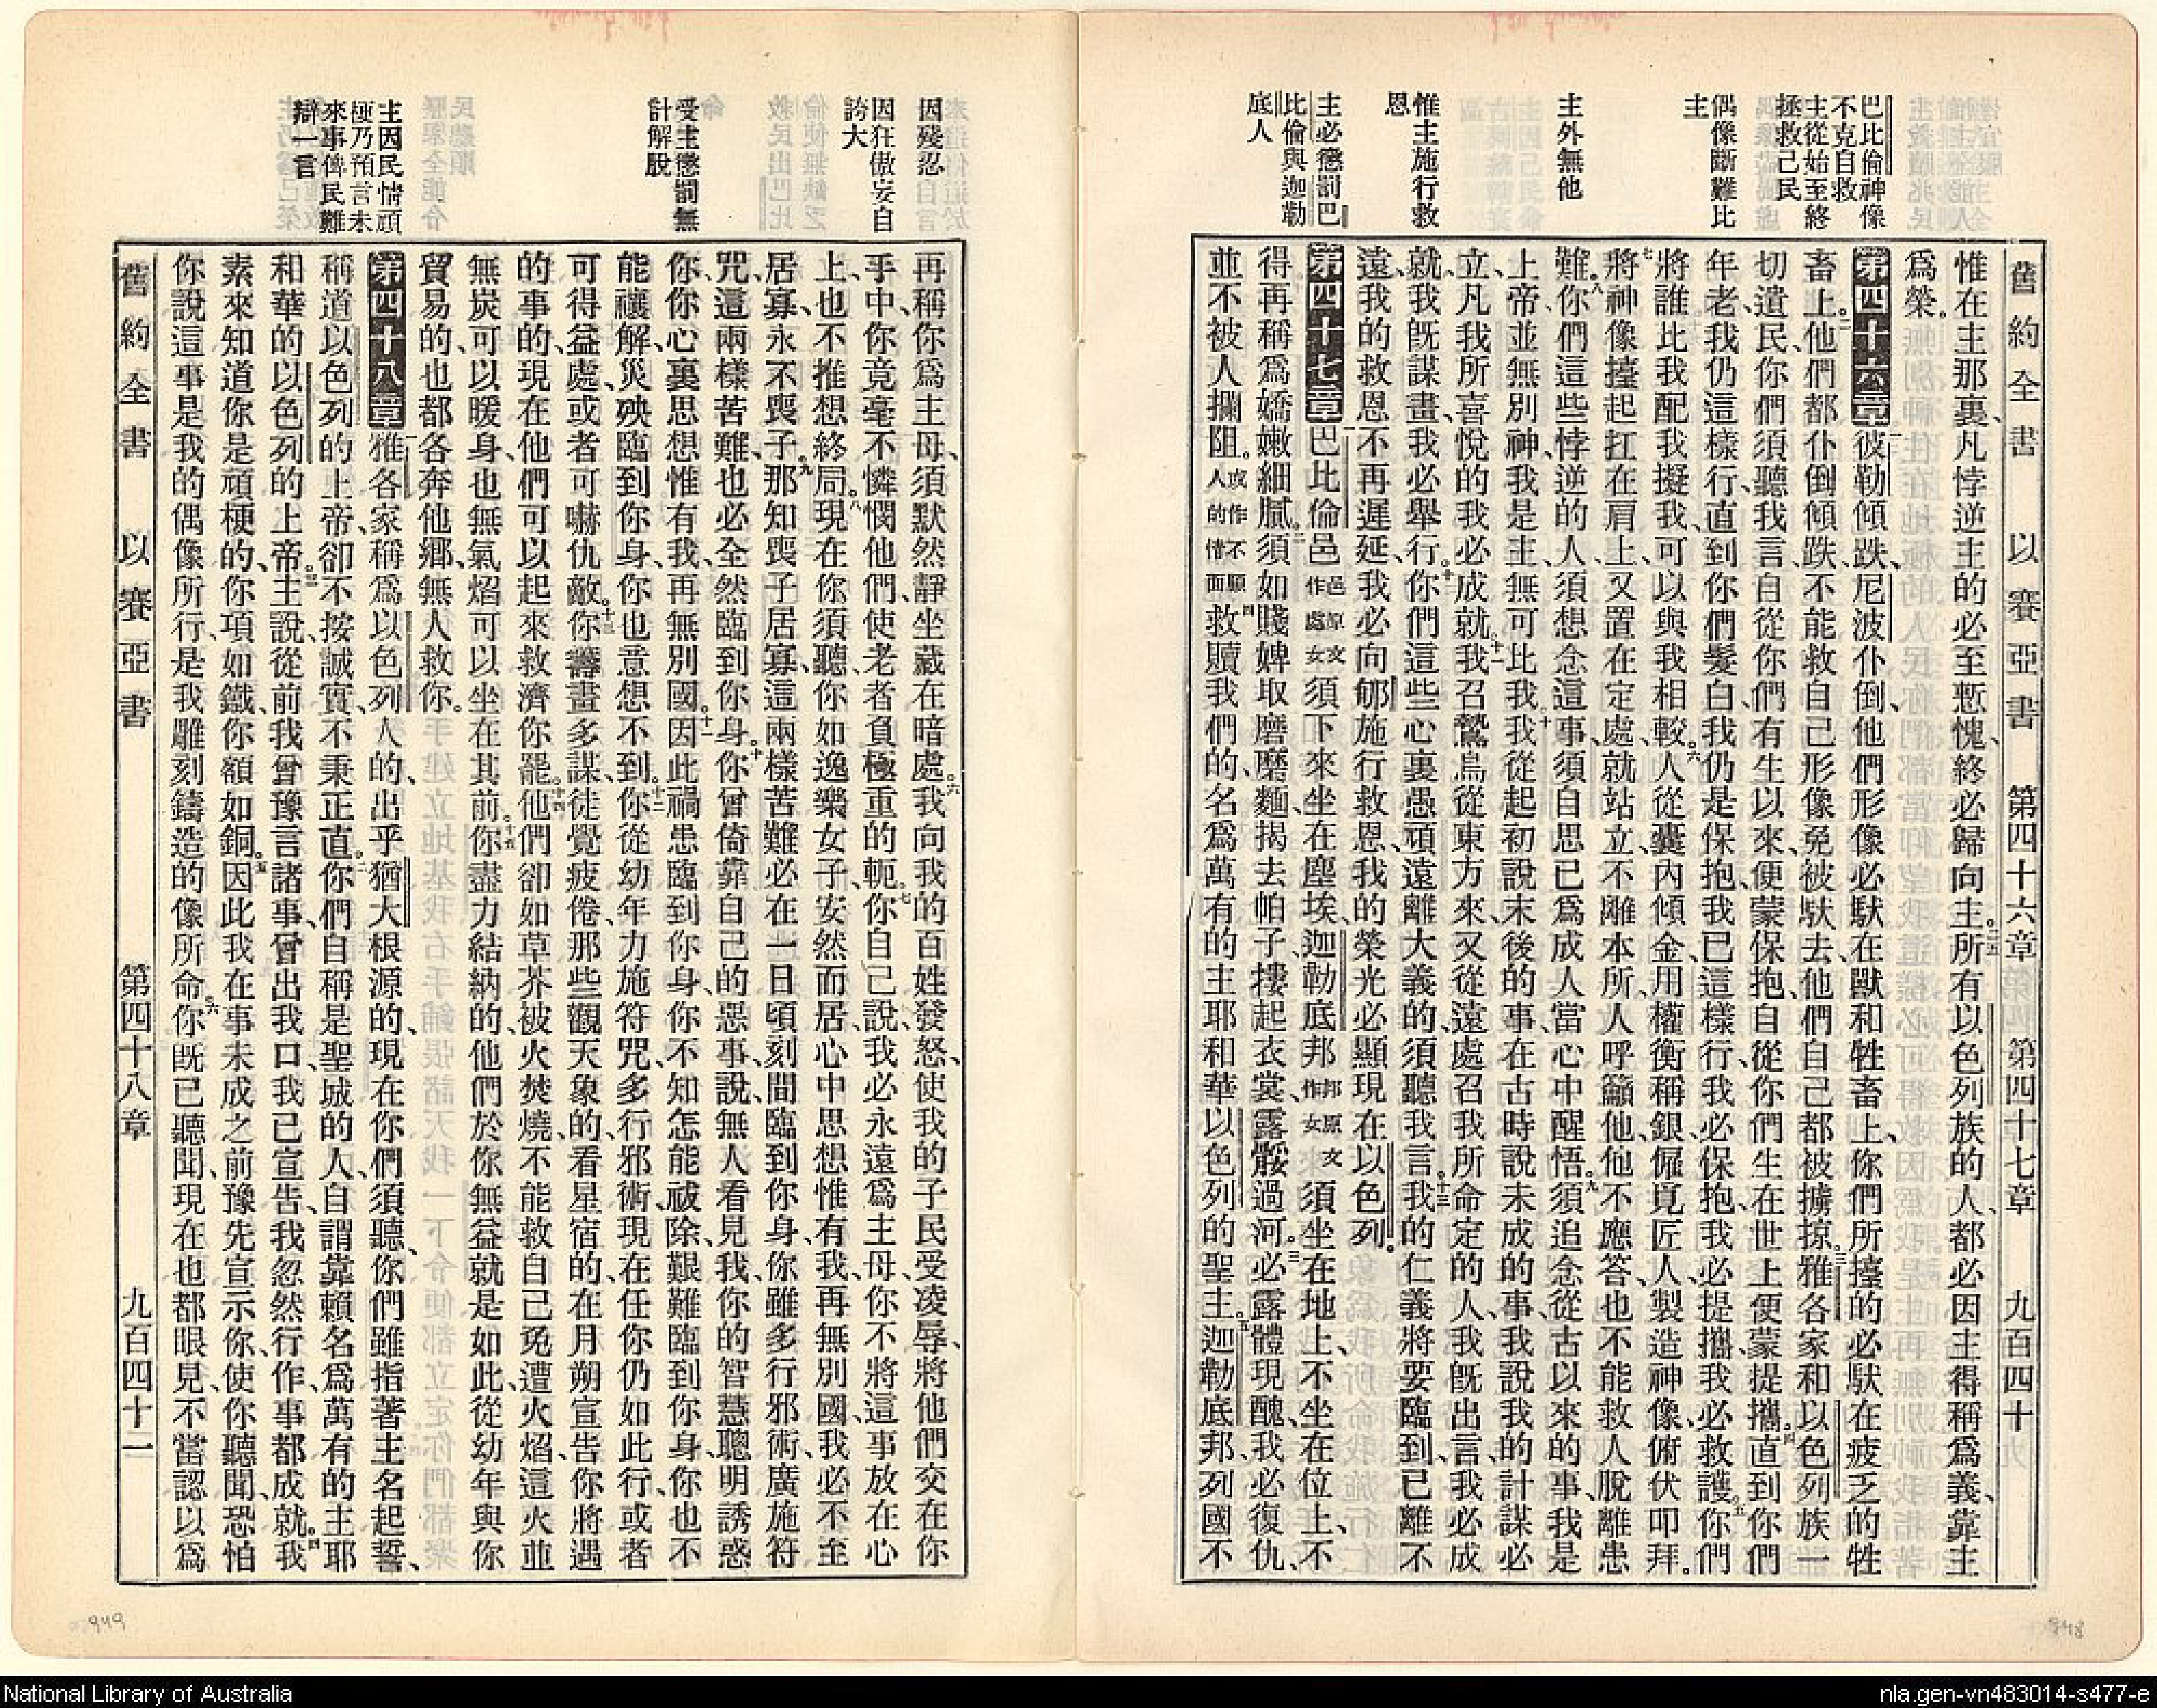 舊約全書 以賽亞書 第四十六章 第四十七章 九百四十
巴比倫神像
不克自救
主從始至終
拯救己民
偶像斷難比
主
主外無他
惟主施行救
恩
主必懲罰巴
比倫與迦勒
底人
惟在主那裏、凡悖逆主的必至慙愧、終必歸向主。二五所有以色列族的人、都必因主得稱爲義、靠主
爲榮。
第四十六章 一彼勒傾跌、尼波仆倒、他們形像必馱在獸和牲畜上、你們所擡的必馱在疲乏的牲
畜上。二他們都仆倒傾跌、不能救自己形像免被馱去、他們自己都被擄掠。三雅各家和以色列族一
切遺民、你們須聽我言、自從你們有生以來、便蒙保抱、自從你們生在世上、便蒙提攜。四直到你們
年老、我仍這樣行、直到你們髮白、我仍是保抱、我已這樣行、我必保抱、我必提攜、我必救護。五你們
將誰比我配我擬我、可以與我相較。六人從囊內傾金、用權衡稱銀、僱覓匠人、製造神像、俯伏叩拜。
七將神像擡起扛在肩上、又置在定處、就站立、不離本所、人呼籲他、他不應答、也不能救人脫離患
難。八你們這些悖逆的人、須想念這事、須自思已爲成人、當心中醒悟。九須追念從古以來的事、我是
上帝、並無別神、我是主、無可比我。十我從起初說末後的事、在古時說未成的事、我說我的計謀必
立、凡我所喜悅的我必成就。十一我召鷙鳥從東方來、又從遠處召我所命定的人、我旣出言、我必成
就、我旣謀畫、我必舉行。十二你們這些心裏愚頑遠離大義的、須聽我言。十三我的仁義將要臨到、已離不
遠、我的救恩不再遲延、我必向郇施行救恩、我的榮光必顯現在以色列。
第四十七章 一巴比倫邑邑原文作處女須下來坐在塵埃、迦勒底邦邦原文作女須坐在地上、不坐在位上、不
得再稱爲嬌嫩細膩。二須如賤婢取磨磨麵、揭去帕子、摟起衣裳、露骽過河。三必露體現醜、我必復仇、
並不被人攔阻。或作不顧人的情面四救贖我們的、名爲萬有的主耶和華以色列的聖主。五迦勒底邦、列國不
因殘忍
因狂傲妄自
誇大
受主懲罰無
計解脫
主因民情頑
梗乃預言未
來事俾民難
辯一言
再稱你爲主母、須默然靜坐藏在暗處。六我向我的百姓發怒、使我的子民受凌辱、將他們交在你
手中、你竟毫不憐憫他們、使老者負極重的軛。七你自己說、我必永遠爲主母、你不將這事放在心
上、也不推想終局。八現在你須聽、你如逸樂女子、安然而居、心中思想惟有我、再無別國、我必不至
居寡、永不喪子。九那知喪子居寡、這兩樣苦難、必在一日頃刻間臨到你身、你雖多行邪術、廣施符
咒、這兩樣苦難、也必全然臨到你身。十你曾倚靠自己的惡事、說、無人看見我、你的智慧聰明誘惑
你、你心裏思想惟有我、再無別國。十一因此禍患臨到你身、你不知怎能祓除、艱難臨到你身、你也不
能禳解、災殃臨到你身、你也意想不到。十二你從幼年力施符咒、多行邪術、現在任你仍如此行、或者
可得益處、或者可嚇仇敵。十三你籌畫多謀、徒覺疲倦、那些觀天象的、看星宿的、在月朔宣告你將遇
的事的、現在他們可以起來救濟你罷。十四他們卻如草芥被火焚燒、不能救自己免遭火焰、這火並
無炭可以暖身、也無氣焰可以坐在其前。十五你盡力結納的、他們於你無益就是如此、從幼年與你
貿易的、也都各奔他鄉、無人救你。
第四十八章 一雅各家稱爲以色列人的、出乎猶大根源的、現在你們須聽、你們雖指著主名起誓、
稱道以色列的上帝、卻不按誠實、不秉正直。二你們自稱是聖城的人、自謂靠賴名爲萬有的主耶
和華的以色列的上帝。三主說、從前我曾豫言諸事、曾出我口、我已宣告、我忽然行作、事都成就。四我
素來知道你是頑梗的、你項如鐵、你額如銅。五因此我在事未成之前、豫先宣示你、使你聽聞、恐怕
你說這事是我的偶像所行、是我雕刻鑄造的像所命。六你旣已聽聞、現在也都眼見、不當認以爲
舊約全書 以賽亞書 第四十八章 九百四十一
949
948
National Library of Australia
nla.gen-vn483014-s477-e